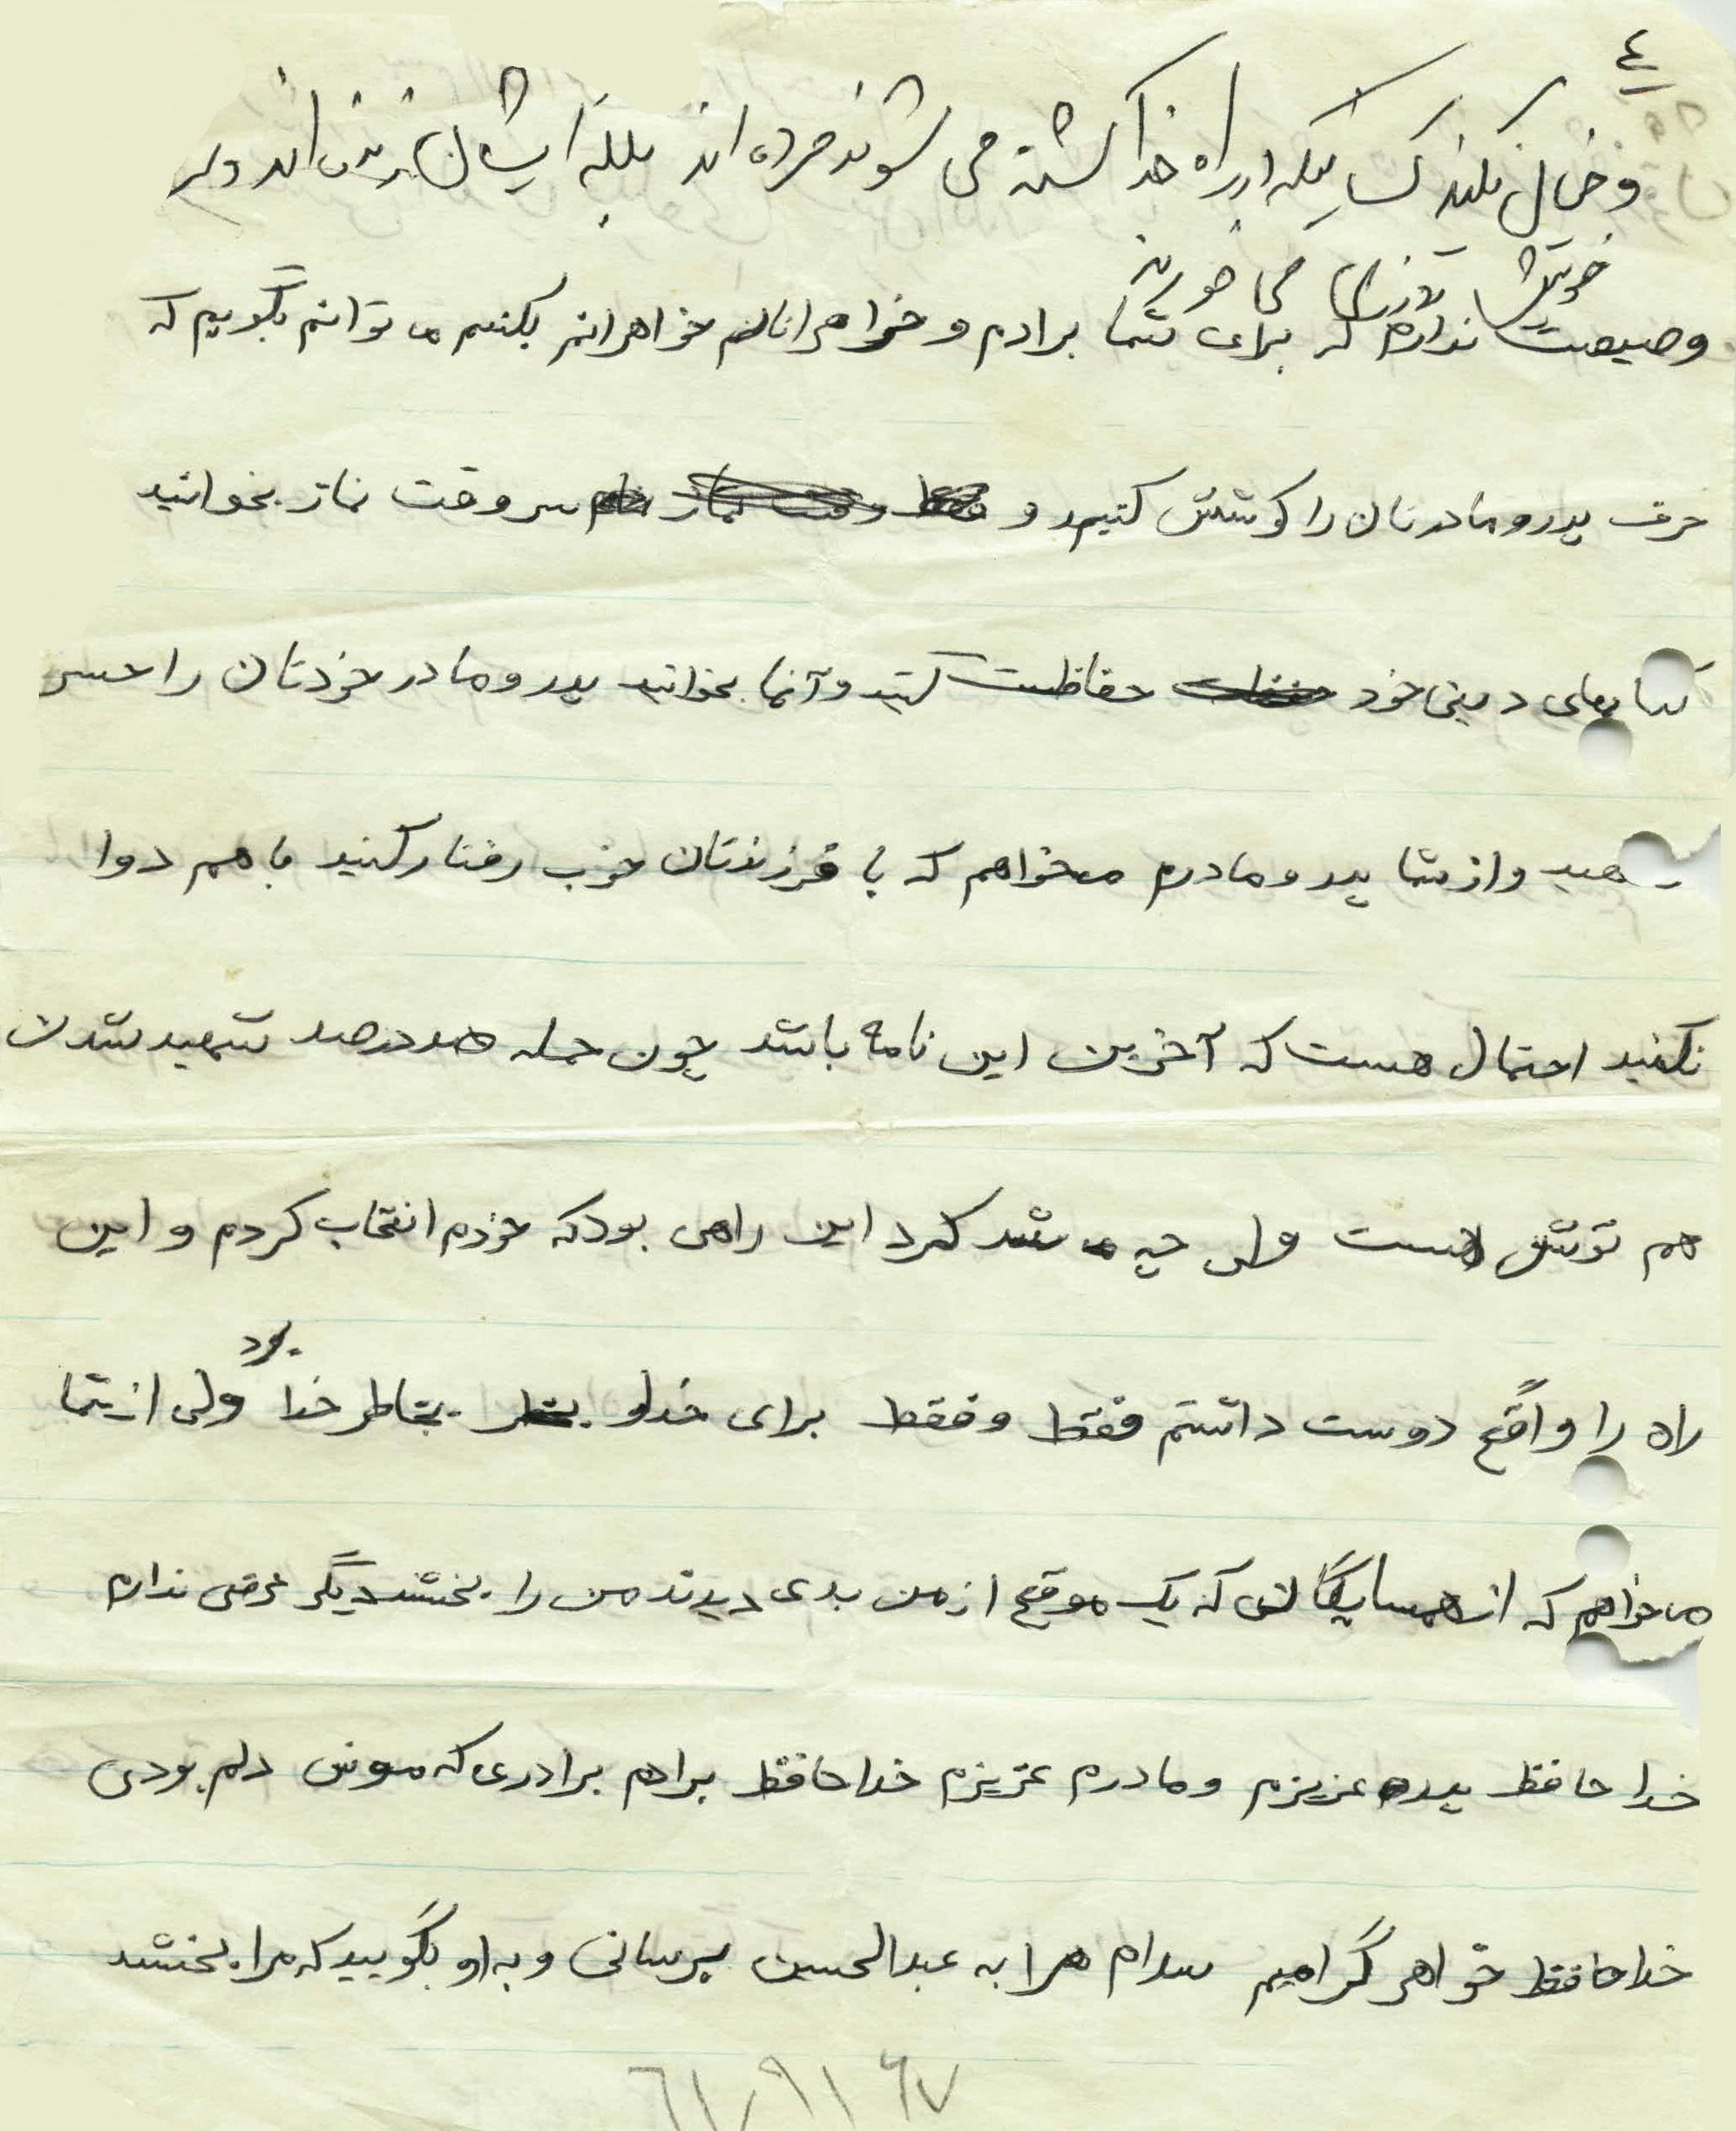 ٤
و خیال نکنید کسانیکه در راه خدا کشته می شوند مرده اند بلکه ایشان زنده اند و نزد
خویش روزی می خورند
وصیعت ندارم که برای شما برادرم و خواهرانم خواهرانم بکنیم می توانم بگویم که
حرف پدر و مادرتان را گوشش کنیدو سر وقت نماز بخوانید
کتابهای دینی خود حفاظت کنید و آنها بخوانید پدر و مادر خودتان را
دهید و از شما پدر و مادرم میخواهم که با فرزندتان خوب رفتار کنید با هم دوا
نکنید احتمال هست که آخرین این نامه باشد چون حمله صددرصد شهید شدن
هم توش هست ولی چه می شد کرد این راهی بود که خودم انتخاب کردم و این
راه را واقعً دوست داشتم فقط و فقط برای خدا و بخاطر خدا بود ولی از شما
می خواهم که از همسایگانی که یک موقع از من بدی دیدند من را ببخشند دیگر عرضی ندارم
خدا حافظ پدر عزیزم و مادرم عزیزم خداحافظ برادرم برادری که مونس دلم بودی
خداحافظ خواهر گرامیم سلام مرا به عبدالحسین برسانی و به او بگویید که مرا ببخشد
٦١/٩/١ ٦٧